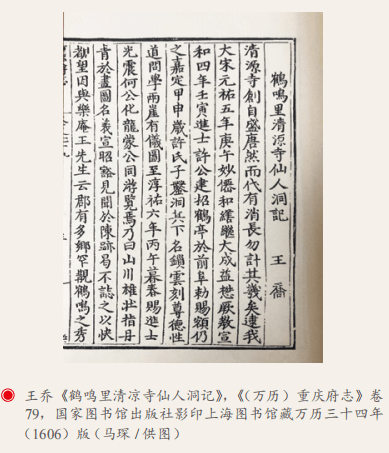 鶴鳴里清凉寺仙人洞記
王喬
清源寺創自盛唐然而代有消長勿計其幾矣逮我
大宋元祐五年庚午妙優和繕繼大成益懋厥教宣
和四年壬寅進士許公建招鶴亭於前阜勅賜額仍
之嘉定甲申歲許氏子鑿洞其下名鎻雲刻尊德性
道問學兩崖有儀圖至淳祐六年丙午暮春賜進士
光震何公化龍蒙公同將覽焉乃曰山川雄壯指毋
肯於畫圖名義宣昭豁見聞於陳跡曷不誌之以快
觀望因與樂庵王先生云郡有多鄉罕觀鶴鳴之秀
王乔《鹤鸣里清凉寺仙人洞记》，《（万历）重庆府志》卷
79，国家图书馆出版社影印上海图书馆藏万历三十四年
（1606）版（马琛 / 供图）